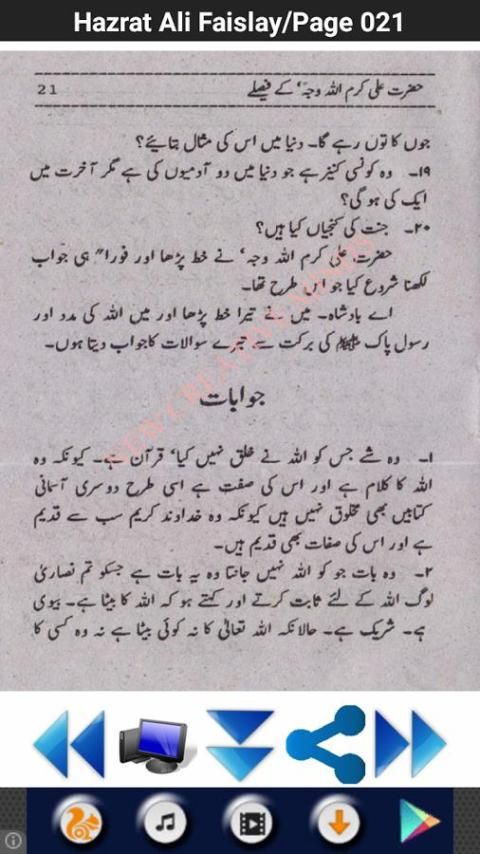 Hazrat Ali Faislay/Page 021
حضرت علی کرم اللہ وجہ' کے فیصلے 21
جوں کا توں رہے گا۔ دنیا میں اس کی مثال بتائیے؟
۱۹۔ وہ کونسی کنیز ہے جو دنیا میں دو آدمیوں کی ہے مگر آخرت میں
ایک کی ہو گی؟
۲۰۔ جنت کی کنجیاں کیا ہیں؟
حضرت علی کرم اللہ وجہ' نے خط پڑھا اور فورا" ہی جواب
لکھنا شروع کیا جو اس طرح تھا۔
اے بادشاہ۔ میں نے تیرا خط پڑھا اور میں اللہ کی مدد اور
رسول پاک ﷺ کی برکت سے تیرے سوالات کا جواب دیتا ہوں۔
جوابات
۱۔ وہ شے جس کو اللہ نے خلق نہیں کیا' قرآن ہے۔ کیونکہ وہ
اللہ کا کلام ہے اور اس کی صفت ہے اسی طرح دوسری آسمانی
کتابیں بھی مخلوق نہیں ہیں کیونکہ وہ خداوند کریم سب سے قدیم
ہے اور اس کی صفات بھی قدیم ہیں۔
۲۔ وہ بات جو کو اللہ نہیں جانتا وہ یہ بات ہے جسکو تم نصاریٰ
لوگ اللہ کے لئے ثابت کرتے اور کہتے ہو کہ اللہ کا بیٹا ہے۔ بیوی
ہے۔ شریک ہے۔ حالانکہ اللہ تعالیٰ کا نہ کوئی بیٹا ہے نہ وہ کسی کا